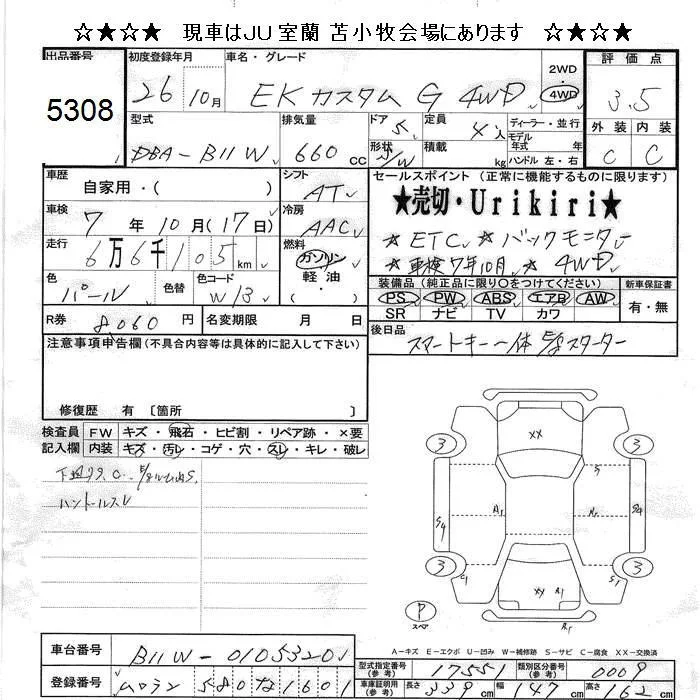 ☆★☆★ 現車はJU室蘭 苫小牧会場にあります ★☆★☆
出品番号
5308
初度登録年月
26 10月
車名・グレード
EKカスタム G 4WD
2WD
4WD
評価点
3.5
外装 内装
C C
型式
DBA-B11W
排気量
660 cc
ドア 5
形状 S/W
定員 4人
積載 kg
ディーラー・並行
モデル
年式 年
ハンドル 左・右
車歴
自家用・( )
シフト
AT
車検
7年10月(17日)
冷房
AAC
走行
6万6千105 km
燃料
ガソリン
軽・油
( )
色
パール
色替
色コード
W13
R券 8,060円
名変期限 月 日
セールスポイント (正常に機能するものに限ります)
★売切・Urikiri★
☆ETC ☆バックモニター
☆車検7年10月 ☆4WD
装備品 (純正品に限り○をつけてください)
PS PW ABS エアB AW
SR ナビ TV カワ
新車保証書
有・無
後日品
スマートキー一体E/gスターター
注意事項申告欄(不具合内容等は具体的に記入して下さい)
修復歴 有 〔箇所 〕
検査員
記入欄
FW キズ・飛石・ヒビ割・リペア跡・×要
内装 キズ・汚レ・コゲ・穴・スレ・キレ・破レ
ハンドルスレ
XX
3 3
S
S4 A1 R1 S4
3 3
C1 S1
XX R1
P
スペア
R1
A-キズ E-エクボ U-凹み W-補修跡 S-サビ C-腐食 XX-交換済
車台番号 B11W-0105320
登録番号 ムロラン580な1601
型式指定番号
(参考)
17551
類別区分番号
(参考)
0009
車庫証明用
(参考)
長さ 339 cm
幅 147 cm
高さ 162 cm